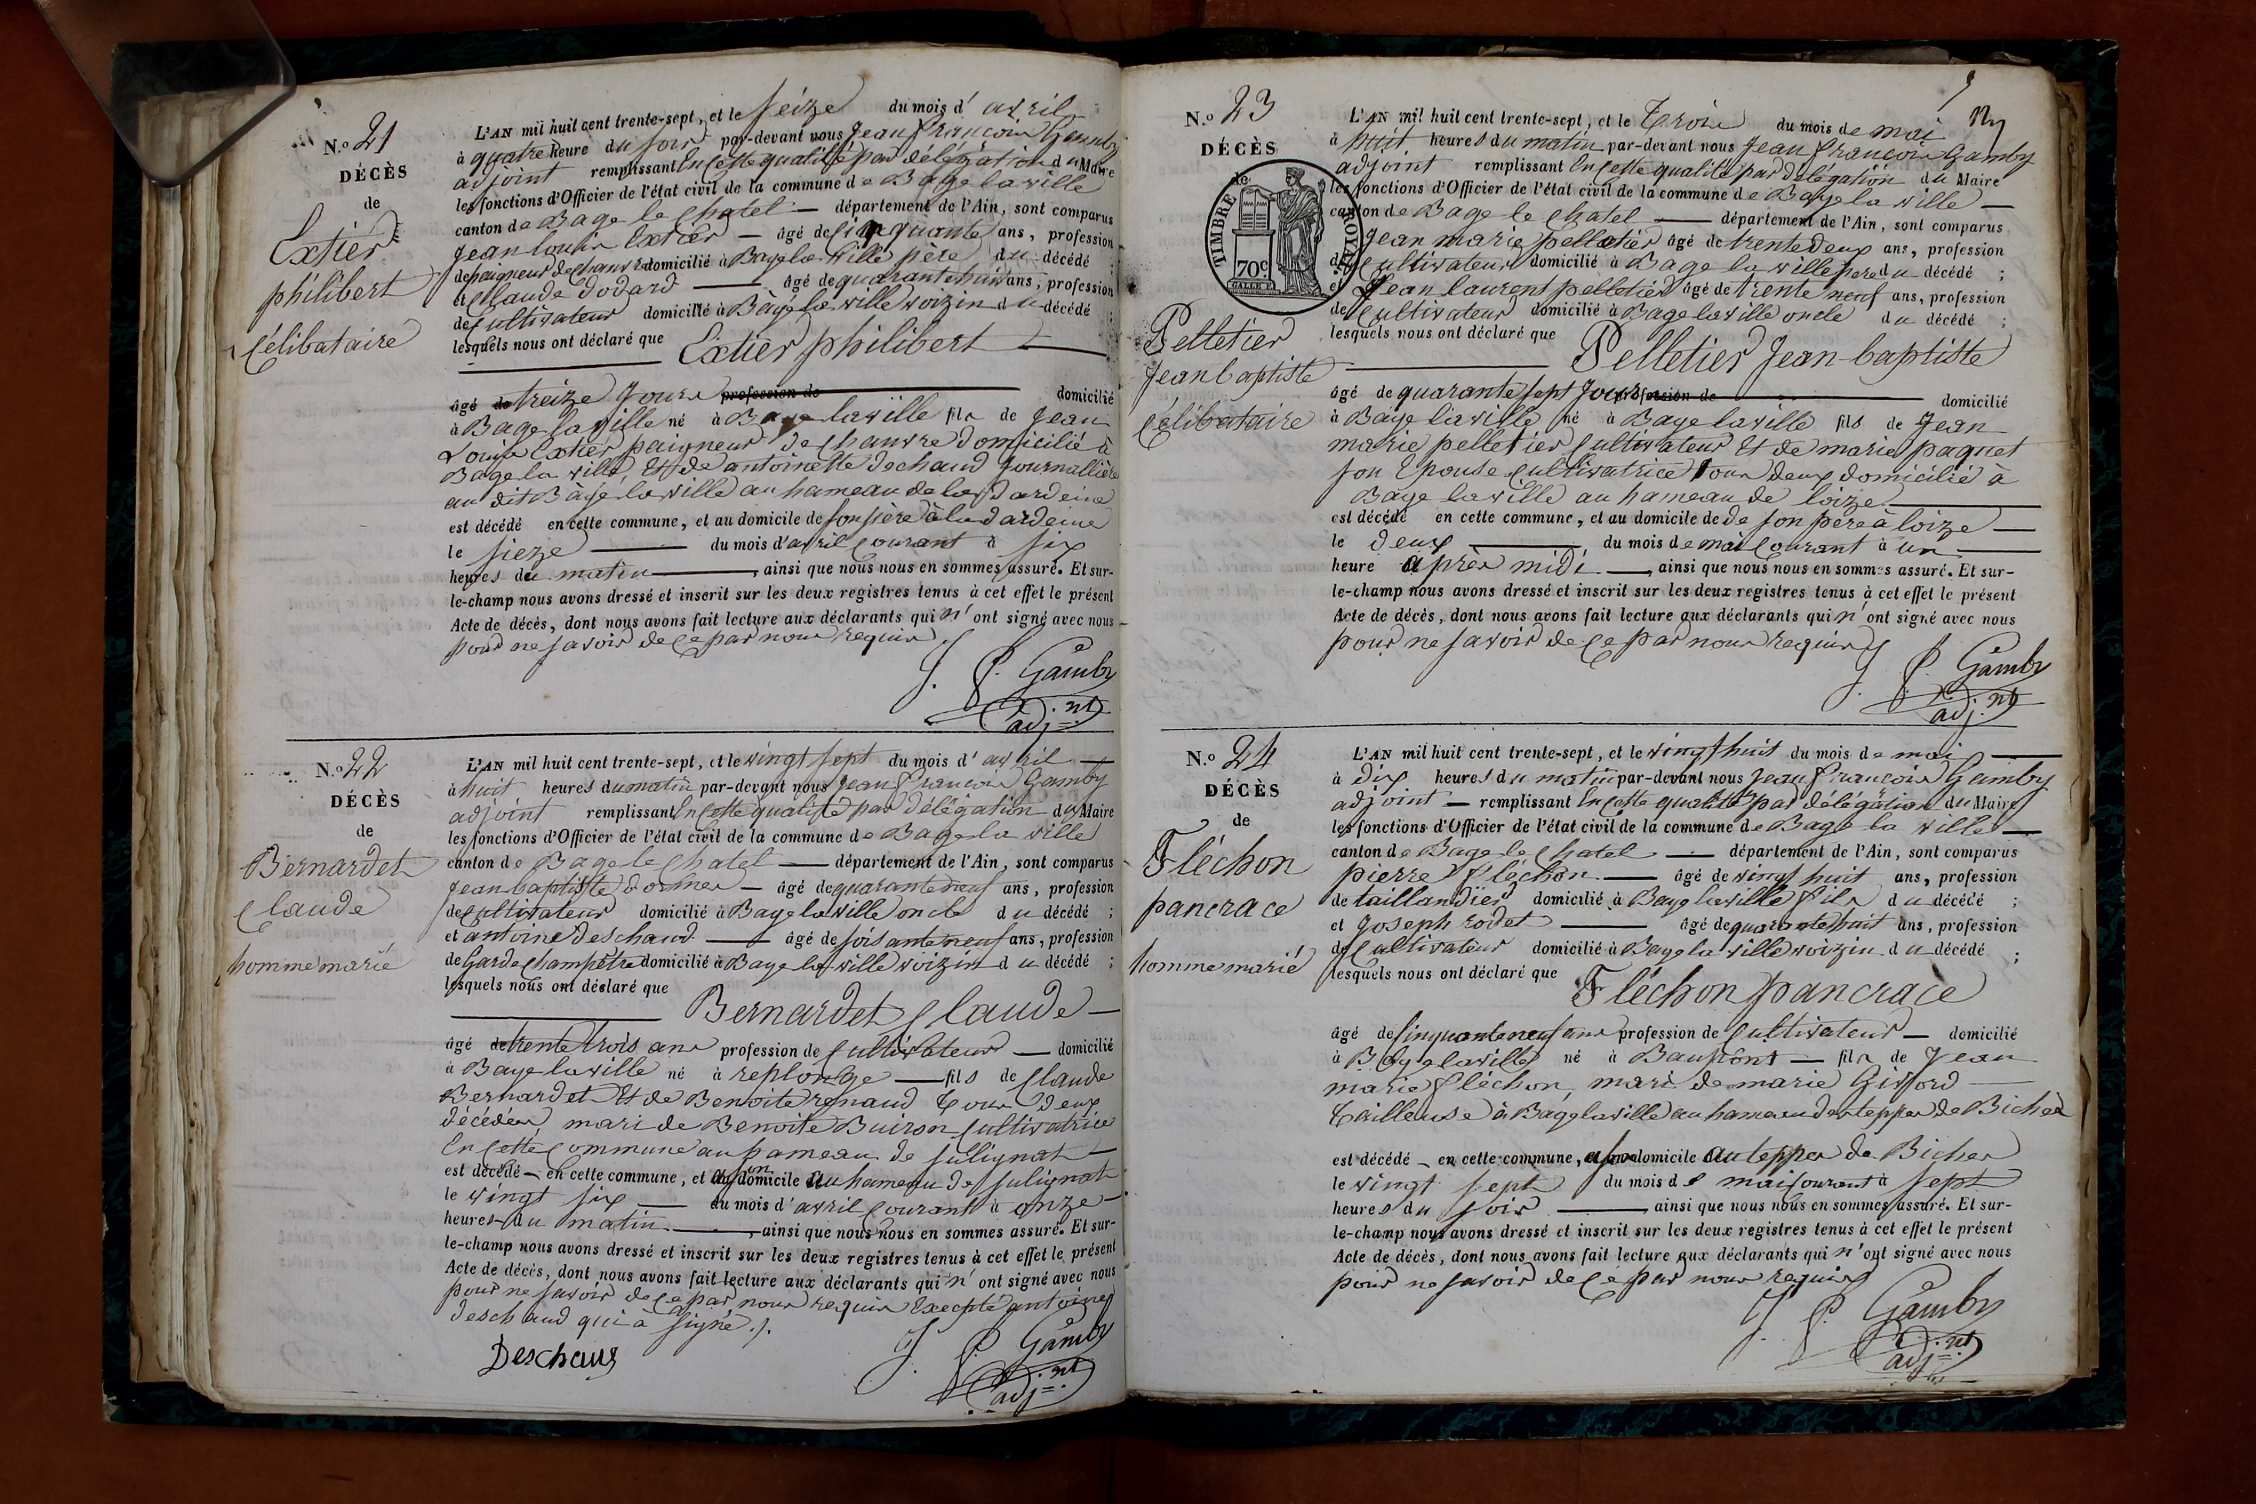 N.º 21
DÉCÈS
de
Extier
philibert
Célibataire
L'AN mil huit cent trente-sept, et le Seize du mois d'avril
à quatre heure du soir par-devant nous Jean françois Gamby
adjoint remplissant En Cette qualité par délégation du Maire
les fonctions d'Officier de l'état civil de la commune de Bage la ville
canton de Bage le Chatel — département de l'Ain, sont comparus
Jean Louis Extier — âgé de Cinquante ans, profession
de paigneur de chanvre domicilié à Bage la ville père du décédé ;
et Claude Dodard — âgé de quarante huit ans, profession
de Cultivateur domicilié à Bage la ville voizin du décédé ;
lesquels nous ont déclaré que Extier philibert
âgé de treize Jours profession de domicilié
à Bage la ville né à Bage la ville fils de Jean
Louis Extier paigneur de Chanvre domicilié à
Bage la ville Et de antoinette dechaud Journallière
au dit Bagé la ville au hameau de la dardeine
est décédé en cette commune, et au domicile de son père à la dardeine
le sieze — du mois d'avril Courant à six
heures du matin —, ainsi que nous nous en sommes assuré. Et sur-
le-champ nous avons dressé et inscrit sur les deux registres tenus à cet effet le présent
Acte de décès, dont nous avons fait lecture aux déclarants qui n'ont signé avec nous
pour ne savoir de Ce par nous requis
J. f. Gamby
adj.nt
N.º 22
DÉCÈS
de
Bernardet
Claude
homme marié
L'AN mil huit cent trente-sept, et le vingt sept du mois d'avril —
à huit heures du matin par-devant nous Jean françois Gamby
adjoint remplissant En Cette qualité par délégation du Maire
les fonctions d'Officier de l'état civil de la commune de Bage la ville
canton de Bage le Chatel — département de l'Ain, sont comparus
Jean baptiste — âgé de quarante neuf ans, profession
de Cultivateur domicilié à Bage la ville oncle du décédé ;
et antoine Deschaud — âgé de soisante neuf ans, profession
de Garde Champêtre domicilié à Bage la ville voizin du décédé ;
lesquels nous ont déclaré que Bernardet Claude —
âgé de trente trois ans profession de Cultivateur — domicilié
à Bage la ville né à replonge — fils de Claude
Bernardet Et de Benoite renaud Tous deux
décédés mari de Benoite Buiron Cultivatrice
En Cette Commune au hameau de sulignat —
est décédé — en cette commune, et au son domicile au hameau de sulignat
le vingt six — du mois d'avril Courant à onze —
heures du matin —, ainsi que nous nous en sommes assuré. Et sur-
le-champ nous avons dressé et inscrit sur les deux registres tenus à cet effet le présent
Acte de décès, dont nous avons fait lecture aux déclarants qui n'ont signé avec nous
pour ne savoir de Ce par nous requis Excepté antoine
deschaud qui a signé ./.
Deschaud
J. f. Gamby
adj.nt
N.º 23
DÉCÈS
de
TIMBRE ROYAL
70c
Pelletier
Jean baptiste
Célibataire
L'AN mil huit cent trente-sept, et le Trois du mois de mai
à huit heures du matin par-devant nous Jean françois Gamby
adjoint remplissant En Cette qualité par délégation du Maire
les fonctions d'Officier de l'état civil de la commune de Bage la ville —
canton de Bage le Chatel — département de l'Ain, sont comparus
Jean marie pelletier âgé de trente deux ans, profession
de Cultivateur domicilié à Bage la ville pere du décédé ;
et Jean laurent pelletier âgé de trente neuf ans, profession
de Cultivateur domicilié à Bage la ville oncle du décédé ;
lesquels nous ont déclaré que Pelletier Jean-baptiste
âgé de quarante sept Jours profession de domicilié
à Bage la ville né à Bage la ville fils de Jean
marie pelletier Cultivateur Et de marie paquet
son Epouse Cultivatrice Tous deux domicilié à
Bage la ville au hameau de loize
est décédé en cette commune, et au domicile de de son père à loize —
le deux — du mois de mai Courant à un —
heure après midi —, ainsi que nous nous en sommes assuré. Et sur-
le-champ nous avons dressé et inscrit sur les deux registres tenus à cet effet le présent
Acte de décès, dont nous avons fait lecture aux déclarants qui n'ont signé avec nous
pour ne savoir de Ce par nous requis
J. f. Gamby
adj.nt
N.º 24
DÉCÈS
de
Fléchon
pancrace
homme marié
L'AN mil huit cent trente-sept, et le vingt huit du mois de mai —
à dix heures du matin par-devant nous Jean françois Gamby
adjoint — remplissant En Cette qualité par délégation du Maire
les fonctions d'Officier de l'état civil de la commune de Bage la ville —
canton de Bage le Chatel — département de l'Ain, sont comparus
pierre fléchon — âgé de vingt huit ans, profession
de taillandier domicilié à Bage la ville fils du décédé ;
et Joseph rodet — âgé de quarante huit ans, profession
de Cultivateur domicilié à Bage la ville voizin du décédé ;
lesquels nous ont déclaré que Fléchon pancrace
âgé de Cinquante neuf ans profession de Cultivateur — domicilié
à Bage la ville né à Baupont — fils de Jean
marie fléchon, mari de marie —
Tailleuse à Bagé la ville au hameau des teppes de Bicher
est décédé — en cette commune, a son domicile au teppes de Bicher
le vingt sept du mois de mai Courant à sept
heures du soir —, ainsi que nous nous en sommes assuré. Et sur-
le-champ nous avons dressé et inscrit sur les deux registres tenus à cet effet le présent
Acte de décès, dont nous avons fait lecture aux déclarants qui n'ont signé avec nous
pour ne savoir de Ce par nous requis
J. f. Gamby
adj.nt